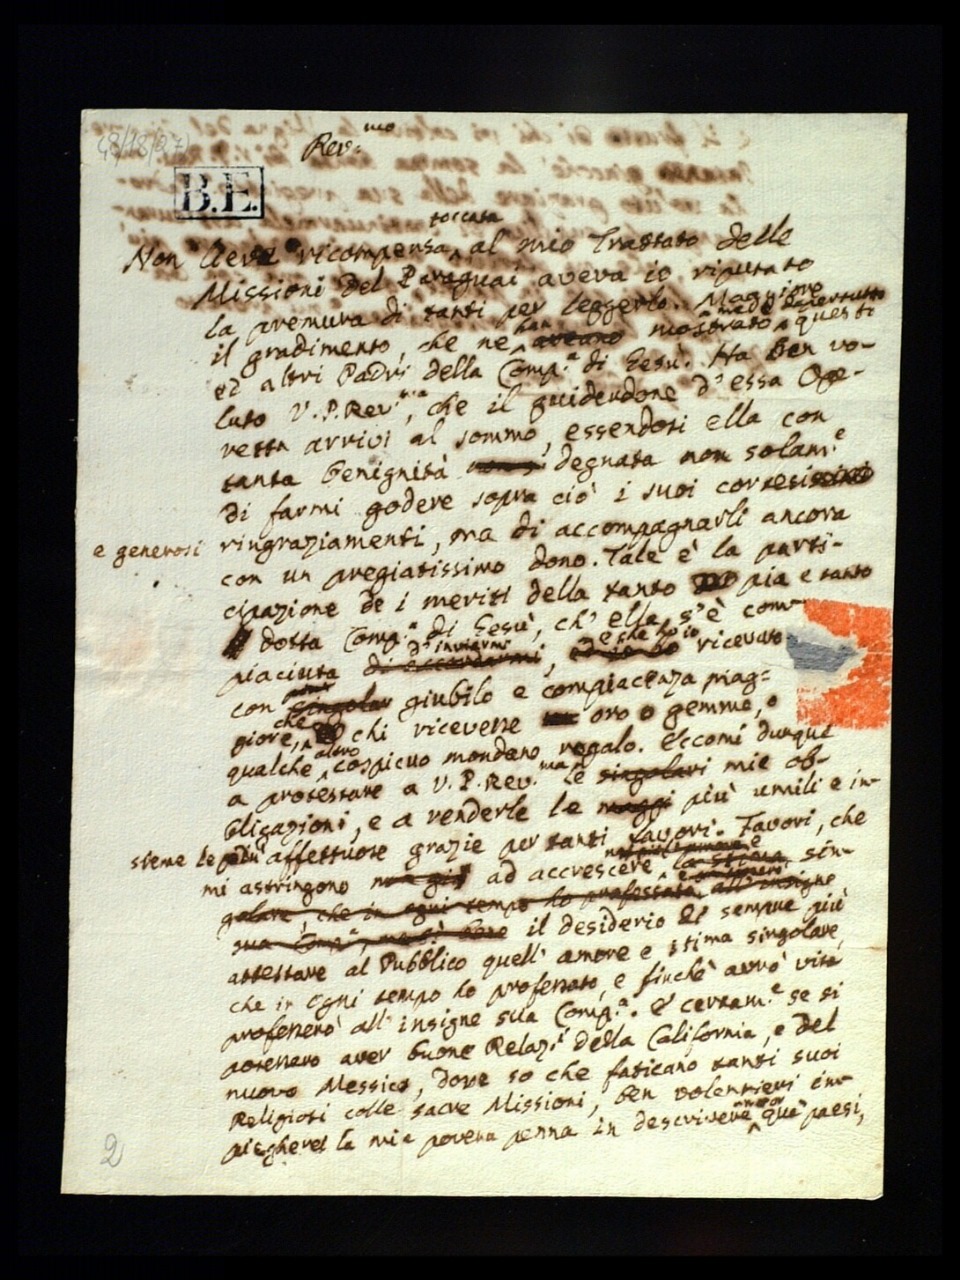 (8/18/27)
Rev.mo
B.E.
toccata
Non lieve ricompensa al mio Trattato delle
Missioni del Paraguai aveva io riputato
la premura di tanti per leggerlo. Maggiore
han made dapertutto
il gradimento, che ne aveano mostrato questi
ed altri Padri della Comp.a di Gesù. Ha ben vo-
luto V. P. Rev.ma, che il guiderdone d'essa Ope-
retta arrivi al sommo, essendosi ella con
tanta benignità degnata non solam.e
di farmi godere sopra ciò i suoi cortesissimi
e generosi ringraziamenti, ma di accompagnarli ancora
con un pregiatissimo dono. Tale è la parti-
cipazione de i meriti della tanto pia e tanto
dotta Comp.a di Gesù, ch'ella s'è com-
d'inviarmi e che ho io
piaciuta di accordarmi, ricevuto
con singolar giubilo e compiacenza mag-
che
giore, chi ricevette oro o gemme, o
altro
qualche cospicuo mondano regalo. Eccomi dunque
a protestare a V. P. Rev.ma le singolari mie ob-
bligazioni, e a renderle le maggi più umili e in-
sieme le più affettuose grazie per tanti favori. Favori, che
mi astringono non già ad accrescere la stima sin-
golare, che in ogni tempo ho professata all'insigne
sua Comp.a, ma sì bene il desiderio di sempre più
attestare al Pubblico quell'amore e stima singolare,
che in ogni tempo ho professato, e finchè avrò vita
professerò all'insigne sua Comp.a. E certam.e se si
potessero aver buone Relazi della California, e del
nuovo Messico, dove so che faticano tanti suoi
Religiosi colle sacre Missioni, ben volentieri im-
piegherei la mia povera penna in descrivere que' paesi,
2